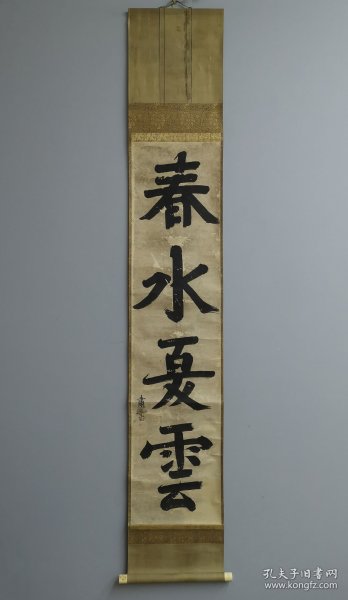 春水夏雲
孔夫子旧书网
book.kongfz.com